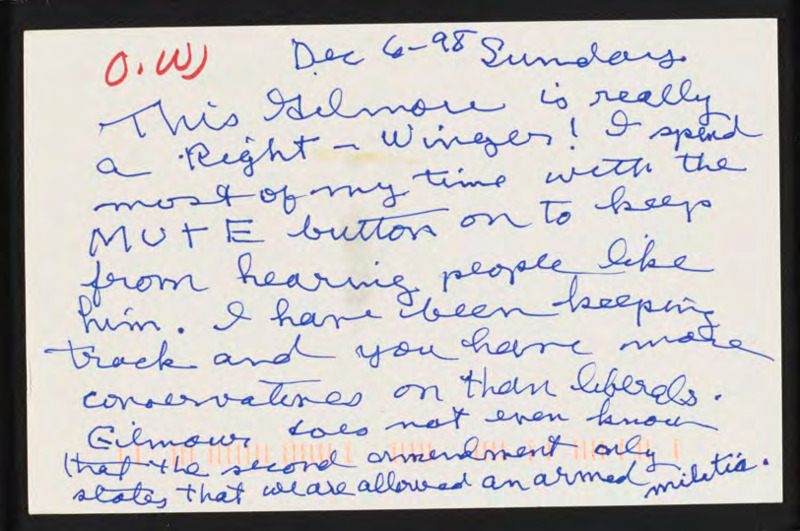 O.W) Dec 6-98 Sunday.
This Gilmore is really
a Right - Winger! I spend
most of my time with the
MUTE button on to keep
from hearing people like
him. I have been keeping
track and you have more
conservatives on than liberals.
Gilmour does not even know
that the second amendment only
states that we are allowed an armed militia.